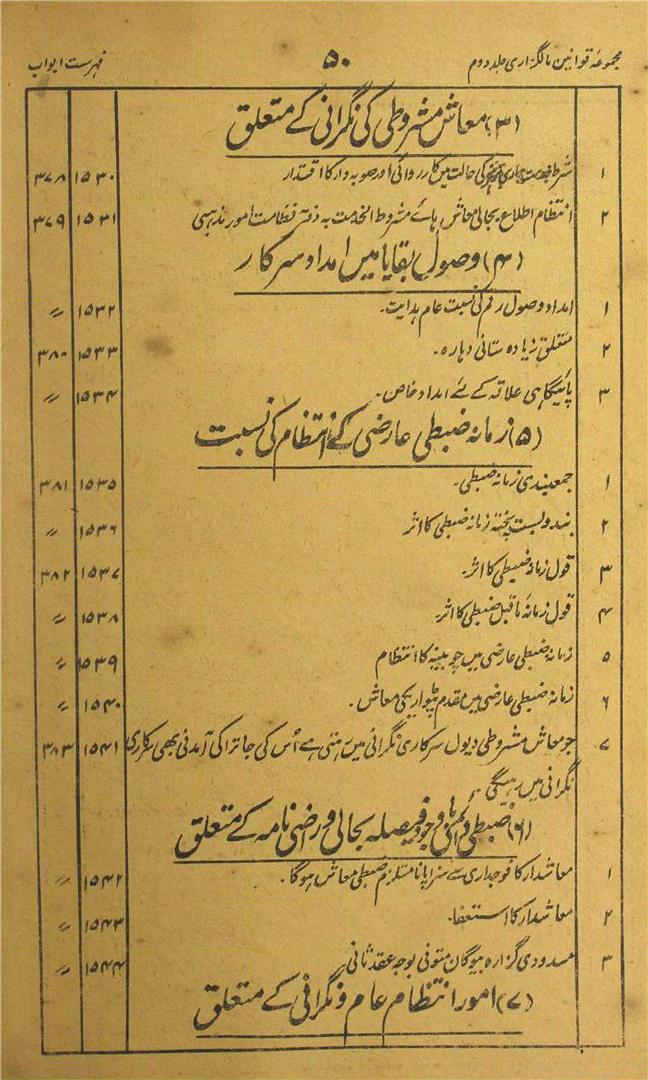 مجموعہ قوانین مالگزاری جلد دوم ۵۰ فہرست ابواب
(۳) معاش مشروطی کی نگرانی کے متعلق
۱ شرط خدمت کی حالت میں کارروائی اور صوبہ دار کا اقتدار ۱۵۳۰ ۳۷۸
۲ انتظام اطلاع بحالی معاش ہائے مشروط الخدمت بہ دفتر نظامت امور مذہبی ۱۵۳۱ ۳۷۹
(۴) وصول بقایا میں امداد سرکار
۱ امداد وصول رقم کی نسبت عام ہدایت۔ ۱۵۳۲ 〃
۲ متعلق زیادہ ستانی دہارہ۔ ۱۵۳۳ ۳۸۰
۳ پائیگاہی علاقہ کے لئے امداد خاص۔ ۱۵۳۴ 〃
(۵) زمانہ ضبطی عارضی کے انتظام کی نسبت
۱ جمعبندی زمانہ ضبطی۔ ۱۵۳۵ ۳۸۱
۲ بندوبست پختہ زمانہ ضبطی کا اثر ۱۵۳۶ 〃
۳ قول زمانہ ضبطی کا اثر۔ ۱۵۳۷ ۳۸۲
۴ قول زمانہ ماقبل ضبطی کا اثر۔ ۱۵۳۸ 〃
۵ زمانہ ضبطی عارضی میں چوبینہ کا انتظام ۱۵۳۹ 〃
۶ زمانہ ضبطی عارضی میں مقدم پٹواری کی معاش۔ ۱۵۴۰ 〃
۷ جو معاش مشروطی دیول سرکاری نگرانی میں رہتی ہے اُس کی جاترا کی آمدنی بھی سرکاری ۱۵۴۱ ۳۸۳
نگرانی میں رہیگی
(۶) ضبطی دائمی باوجود فیصلہ بحالی و راضی نامہ کے متعلق
۱ معاشدار کا فوجداری سے سزا پانا مستلزم ضبطی معاش ہوگا۔ ۱۵۴۲ 〃
۲ معاشدار کا استعفا۔ ۱۵۴۳ 〃
۳ مسدودی گزارہ بیوگان متوفی بوجہ عقد ثانی ۱۵۴۴ 〃
(۷) امور انتظام عام و نگرانی کے متعلق